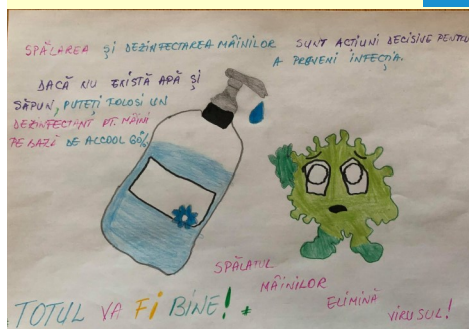 SPĂLAREA ȘI DEZINFECTAREA MÂINILOR SUNT ACȚIUNI DECISIVE PENTRU
A PREVENI INFECȚIA.
DACĂ NU EXISTĂ APĂ ȘI
SĂPUN, PUTEȚI FOLOSI UN
DEZINFECTANT PT. MÂINI
PE BAZĂ DE ALCOOL 60%
SPĂLATUL
MÂINILOR
ELIMINĂ
VIRUSUL!
TOTUL VA FI BINE!